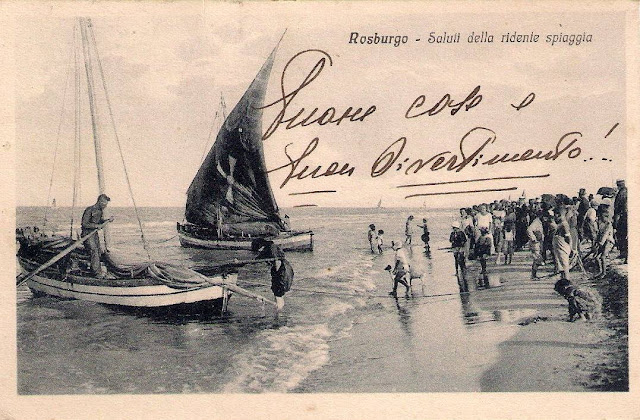 Rosburgo - Saluti della ridente spiaggia
Buone cose e
buon Divertimento!...